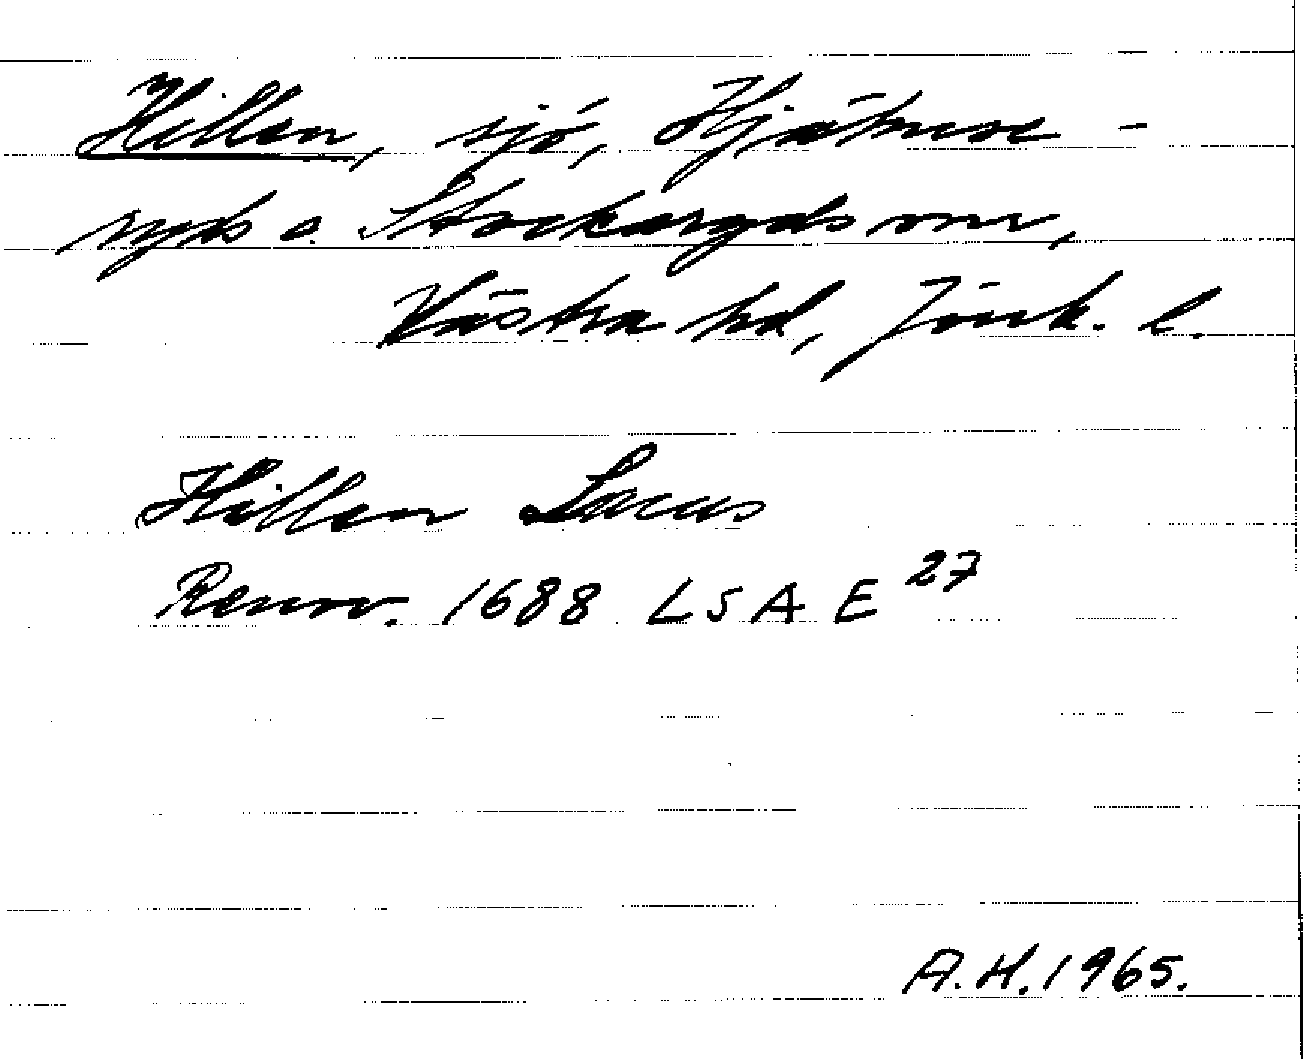 Hillen, sjö, Hjälmse-
ryds o. Stockaryds snr,
Västra hd, Jönk. l.
Hillen Lacus
Renov. 1688 LSA E 27
A.H. 1965.